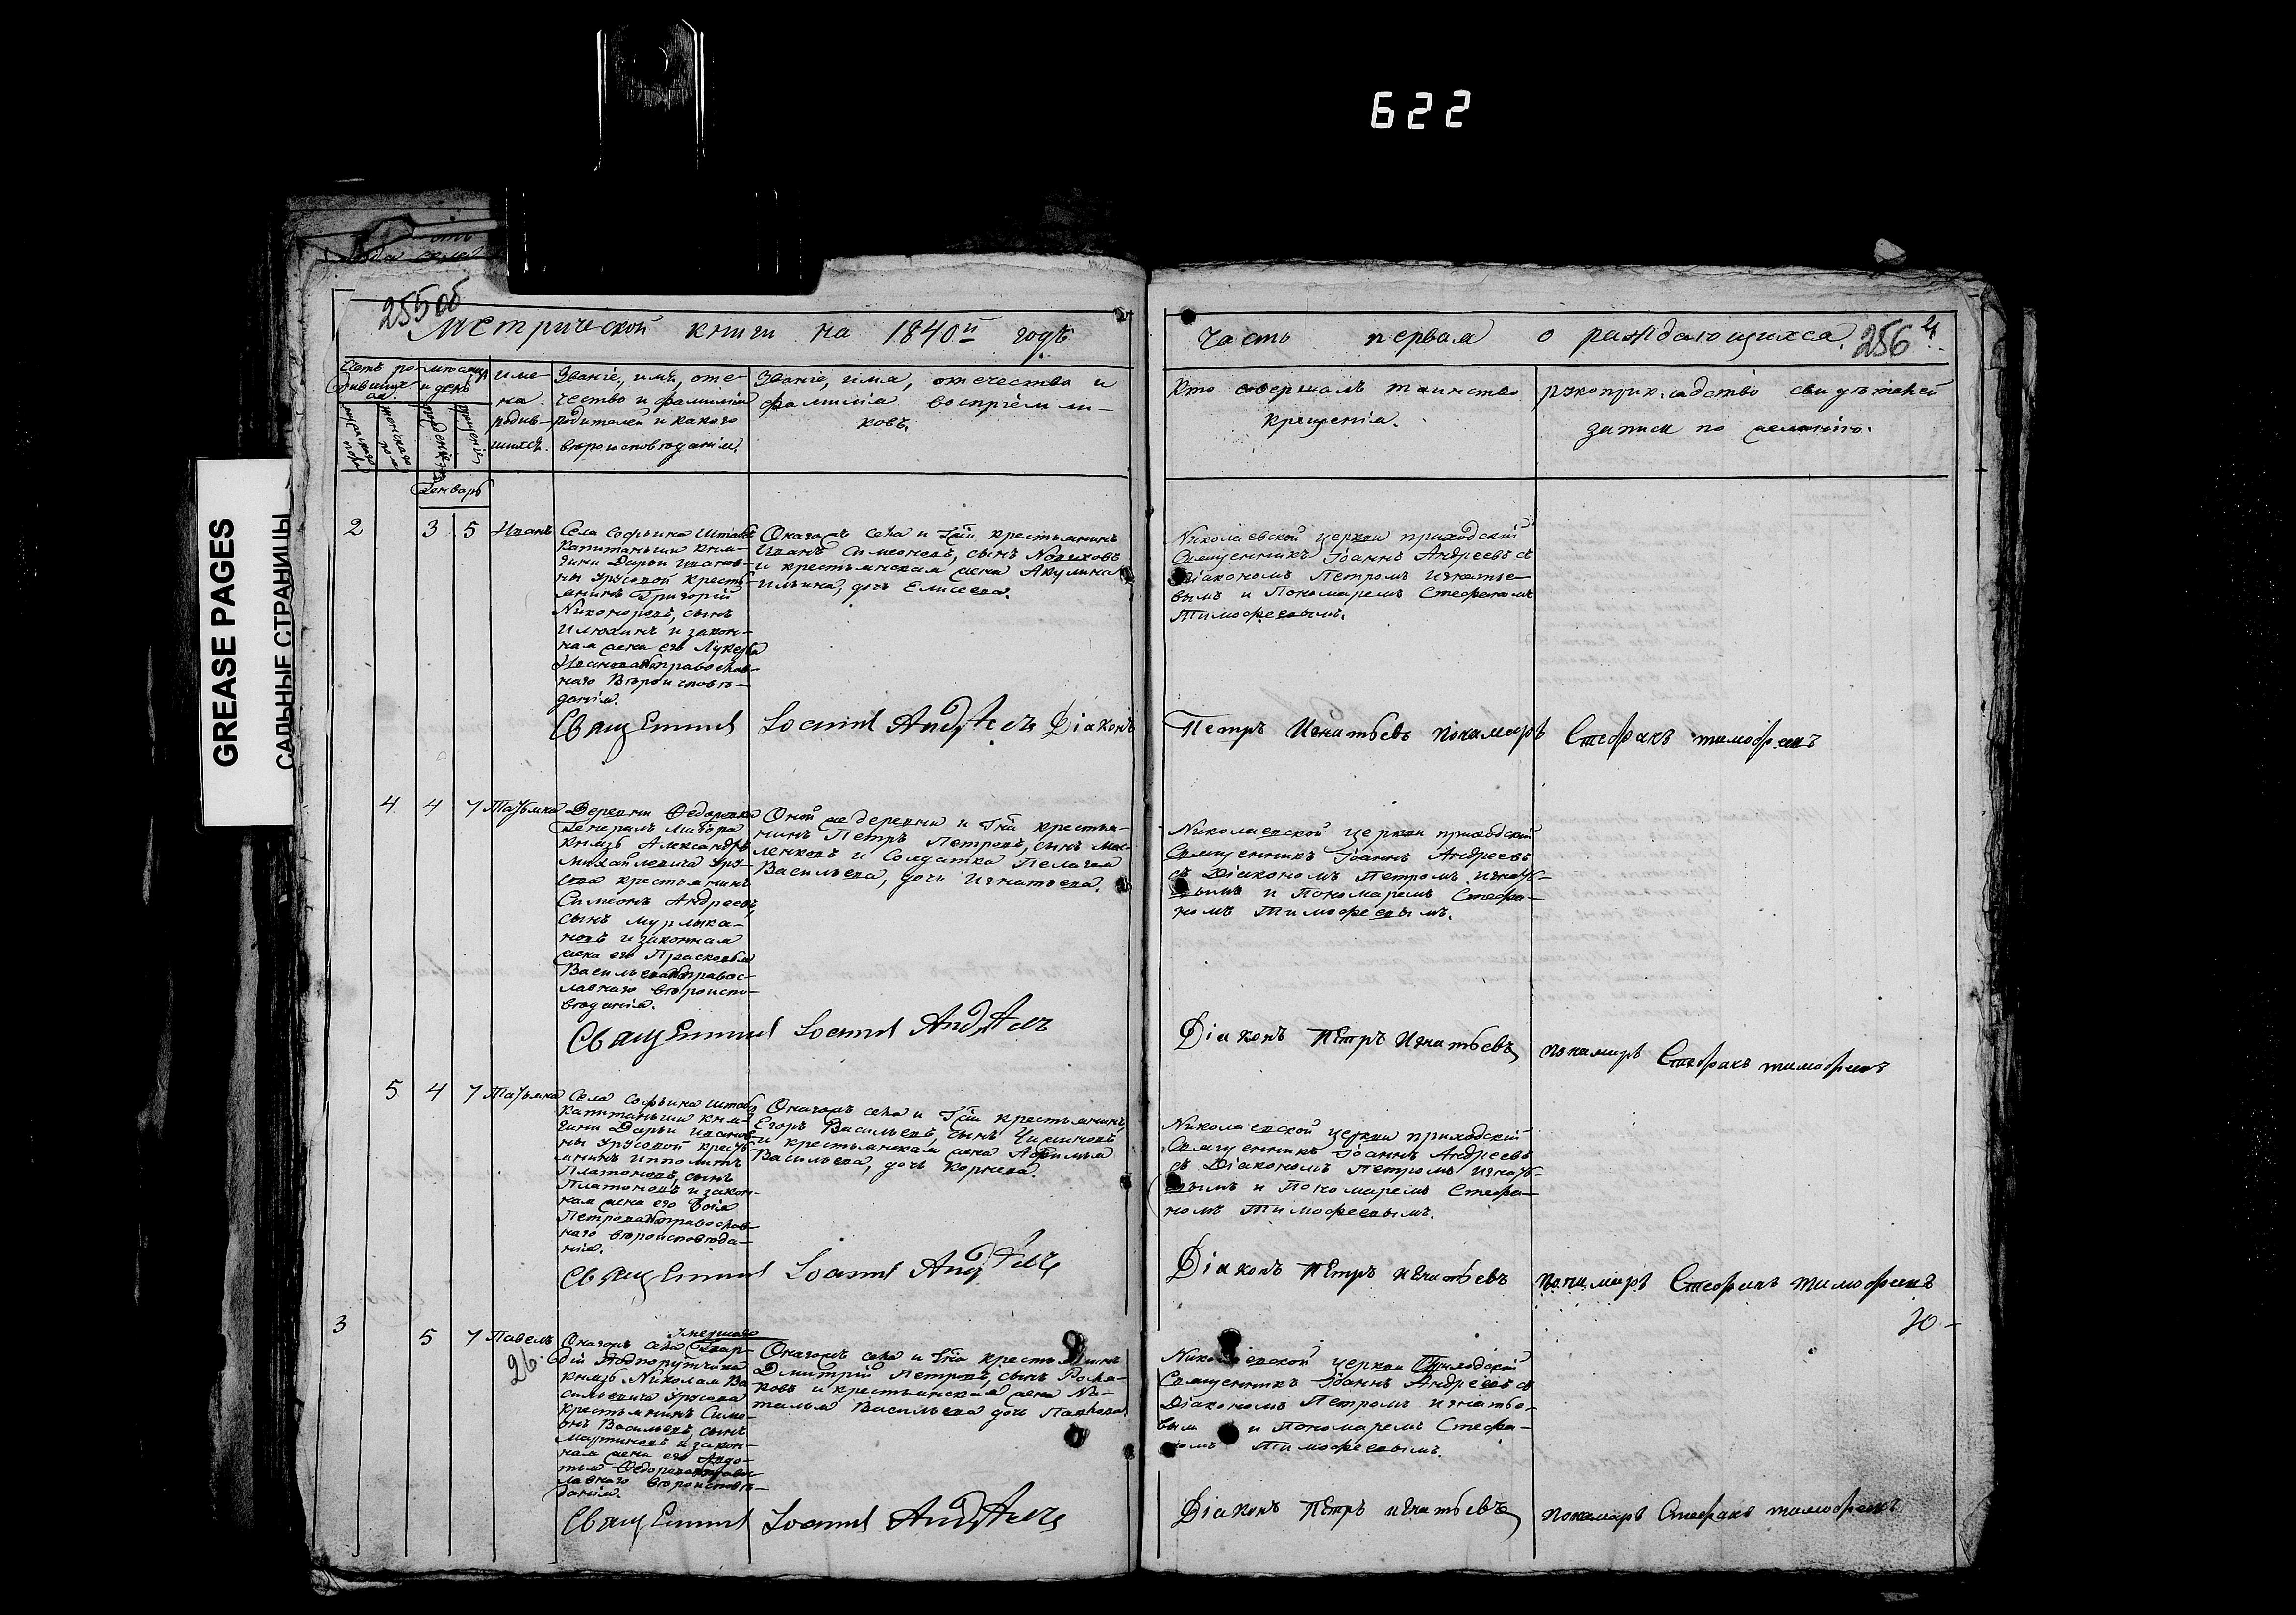 622
GREASE PAGES
САЛЬНЫЕ СТРАНИЦЫ
255об
Метрической книги на 1840й годъ
Часть первая о раждающихся.
256
Счетъ ро-
дивших-
ся.
мужескаго пола
женскаго пола
мѣсяцъ
и день
рожденія
крещенія
име-
на
родив-
шихся.
Званіе, имя, оте-
чество и фамилія
родителей и какого
вѣроисповѣданія.
Званіе, имя, отечество и
фамилія воспріемни-
ковъ.
Кто совершалъ таинство
крещенія.
рукоприкладство свидѣтелей
записи по желанію.
Генварь
2
3
5
Иванъ
Села Софьина Штабсъ
Капитанши Кня-
гини Дарьи Иванов-
ны Урусовой кресть-
янинъ Григорій
Никоноровъ, сынъ
Илюхинъ и закон-
ная жена его Лукерья
Иванова православ-
наго Вѣроисповѣ-
данія.
Онагожъ села и Гжи крестьянинъ
Иванъ Симеоновъ, сынъ Новиковъ
и крестьянская жена Акулина
Ильина, дочь Елисеева.
Николаевской церкви приходскій
Священникъ Іоаннъ Андреевъ съ
Діакономъ Петромъ Игнатье-
вымъ и Пономаремъ Стефаномъ
Тимофеевымъ.
Священникъ Іоаннъ Андреевъ Діаконъ
Петръ Игнатьевъ пономарь Стефанъ тимофеевъ
4
4
7
Татьяна
Деревни Федоровки
Генералъ Маіора
Князь Александръ
Михайловича Уру-
сова крестьянинъ
Симеонъ Андреевъ,
сынъ Мурлыка-
новъ и законная
жена его Прасковья
Васильева православнаго вѣроиспо-
вѣданія.
Оной же деревни и Гна крестья-
нинъ Петръ Петровъ, сынъ Мас-
ленковъ и Солдатка Пелагея
Васильева, дочь Игнатьева.
Николаевской церкви приходскій
Священникъ Іоаннъ Андреевъ
съ Діакономъ Петромъ Игнать-
вымъ и Пономаремъ Стефа-
номъ Тимофеевымъ.
Священникъ Іоаннъ Андреевъ
Діаконъ Петръ Игнатьевъ
пономарь Стефанъ тимофеевъ
5
4
7
Татьяна
Села Софьина Штабсъ
Капитанши Кня-
гини Дарьи Иванов-
ны Урусовой кресть-
янинъ Ипполитъ
Платоновъ, сынъ
Платоновъ и закон-
ная жена его
Петрова православ-
наго вѣроисповѣда-
нія.
Онагожъ села и Гжи крестьянинъ,
Егоръ Васильевъ, сынъ
и крестьянская жена Афимья
Васильева, дочь Корнева.
Николаевской церкви приходскій
Священникъ Іоаннъ Андреевъ
съ Діакономъ Петромъ Игнать-
вымъ и Пономаремъ Стефа-
номъ Тимофеевымъ.
Священникъ Іоаннъ Андреевъ
Діаконъ Петръ Игнатьевъ
пономарь Стефанъ тимофеевъ
3
5
7
Павелъ
26.
Онагожъ села Гвар-
діи Подпорутчика
Князь Николая Ва-
сильевича Урусова
крестьянинъ Симе-
онъ Васильевъ, сынъ
Мартиновъ и закон-
ная жена его Авдо-
тья Федорова православнаго вѣроисповѣ-
данія.
Онагожъ села и Гна крестьянинъ
Дмитрій Петровъ, сынъ Рома-
ковъ и крестьянская жена На-
талья Васильева дочь
Николаевской церкви Приходскій
Священникъ Іоаннъ Андреевъ съ
Діакономъ Петромъ Игнатье-
вымъ и Пономаремъ Стефа-
номъ Тимофеевымъ.
Священникъ Іоаннъ Андреевъ
Діаконъ Петръ Игнатьевъ
пономарь Стефанъ тимофеевъ